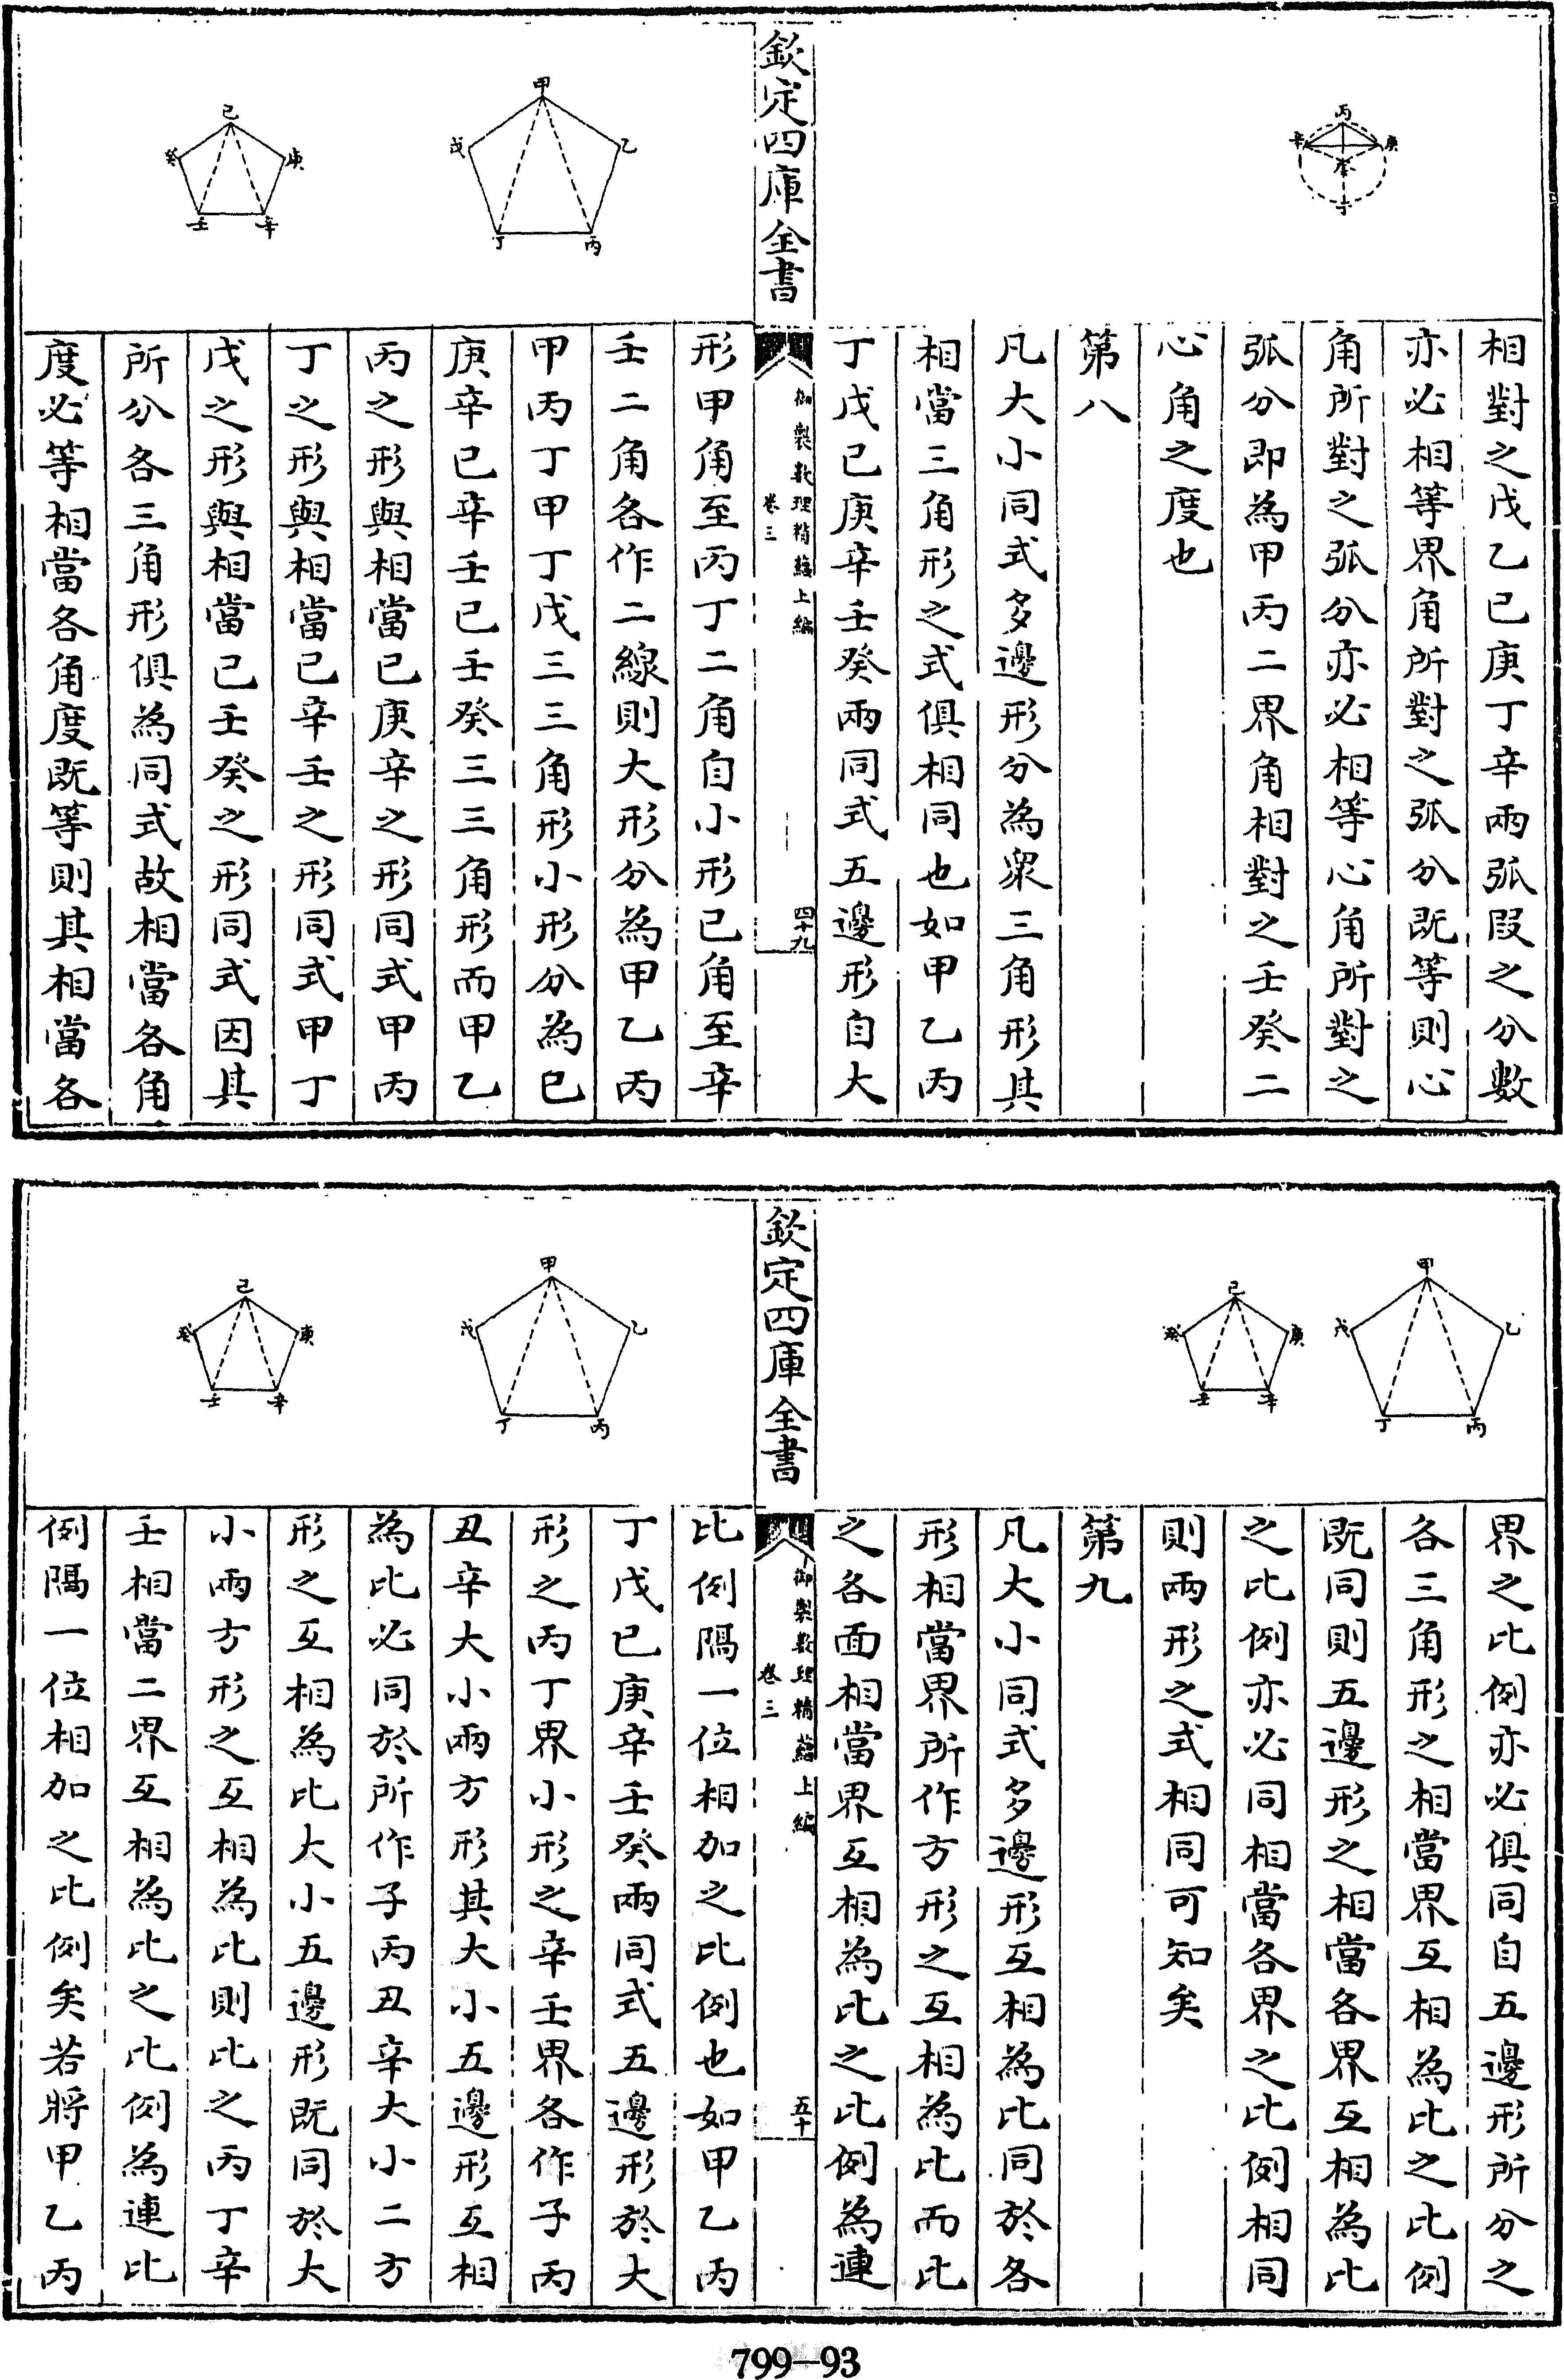 丙
辛
庚
壬
子
相對之戊乙己庚丁辛兩弧叚之分數
亦必相等界角所對之弧分既等則心
角所對之弧分亦必相等心角所對之
弧分即為甲丙二界角相對之壬癸二
心角之度也
第八
凡大小同式多邊形分為衆三角形其
相當三角形之式俱相同也如甲乙丙
丁戊己庚辛壬癸兩同式五邊形自大
欽定四庫全書
御製數理精蘊上編
卷三
四十九
甲
乙
丙
丁
戊
己
庚
辛
壬
癸
形甲角至丙丁二角自小形己角至辛
壬二角各作二線則大形分為甲乙丙
甲丙丁甲丁戊三三角形小形分為己
庚辛己辛壬己壬癸三三角形而甲乙
丙之形與相當己庚辛之形同式甲丙
丁之形與相當己辛壬之形同式甲丁
戊之形與相當己壬癸之形同式因其
所分各三角形俱為同式故相當各角
度必等相當各角度既等則其相當各
甲
乙
丙
丁
戊
己
庚
辛
壬
癸
界之比例亦必俱同自五邊形所分之
各三角形之相當界互相為比之比例
既同則五邊形之相當各界互相為比
之比例亦必同相當各界之比例相同
則兩形之式相同可知矣
第九
凡大小同式多邊形互相為比同於各
形相當界所作方形之互相為比而比
之各面相當界互相為比之比例為連
欽定四庫全書
御製數理精蘊上編
卷三
五十
甲
乙
丙
丁
戊
己
庚
辛
壬
癸
比例隔一位相加之比例也如甲乙丙
丁戊己庚辛壬癸兩同式五邊形於大
形之丙丁界小形之辛壬界各作子丙
丑辛大小兩方形其大小五邊形互相
為比必同於所作子丙丑辛大小二方
形之互相為比大小五邊形既同於大
小兩方形之互相為比則比之丙丁辛
壬相當二界互相為比之比例為連比
例隔一位相加之比例矣若將甲乙丙
799-93